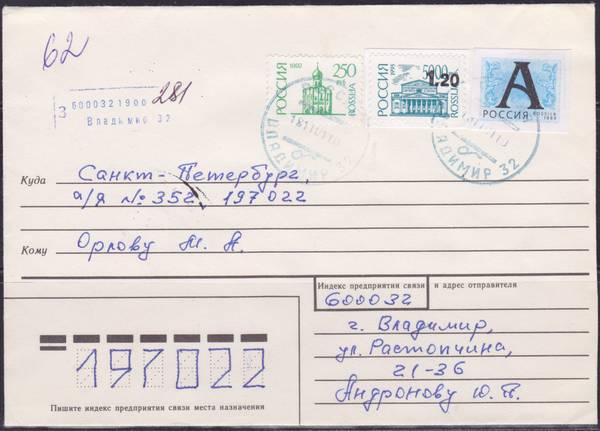 62
281
З 6000321900
Владьмир 32
РОССИЯ
1992
250
ROSSIJA
РОССИЯ
1995
5000
1.20
ROSSIJA
А
РОССИЯ
ВЛАДИМИР 32
Куда
Санкт-Петербург,
а/я № 352, 197022
Кому
Орлову М. А.
Индекс предприятия связи и адрес отправителя
600032
г. Владимир,
ул. Растопчина,
21-36
Андронову Ю. В.
197022
Пишите индекс предприятия связи места назначения